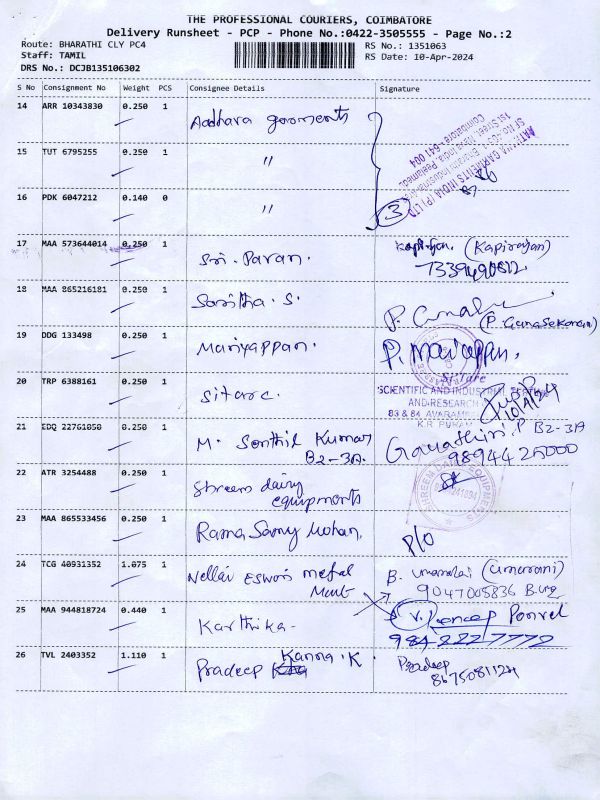 THE PROFESSIONAL COURIERS, COIMBATORE
Delivery Runsheet - PCP - Phone No.:0422-3505555 - Page No.:2
Route: BHARATHI CLY PC4 RS No.: 1351063
Staff: TAMIL RS Date: 10-Apr-2024
DRS No.: DCJB135106302
S No Consignment No Weight PCS Consignee Details Signature
14 ARR 10343830 0.250 1 Aadhava garments
15 TUT 6795255 0.250 1 "
AATHAVA GARMENTS INDIA (P) LTD
Coimbatore - 641 004
16 PDK 6047212 0.140 0 " 3
17 MAA 573644014 0.250 1 Sri. Paran. (Kapirajan)
7339490812
18 MAA 865216181 0.250 1 Saritha. S.
(P. Gunasekaran)
19 DDG 133498 0.250 1 Mariyappan. P. Mariappan.
20 TRP 6388161 0.250 1 Sitarc. Si'Tarc
SCIENTIFIC AND INDUSTRIAL
AND RESEARCH
83 & 84 AVARAMPA
K.R PURAM
10/4/24
21 EDQ 22761050 0.250 1 M. Senthil Kumar B2-3A
B2-3A. 98944 25000
22 ATR 3254488 0.250 1 Shreem dairy
equipments
SHREEM DAIRY EQUIPMENTS
23 MAA 865533456 0.250 1 Rama Samy Mohan. P/O
24 TCG 40931352 1.075 1 Nellai Eswari metal B. Umarani (Umarani)
Mart 9047005836
25 MAA 944818724 0.440 1 Karthika. Ponvel
984 222 7772
26 TVL 2403352 1.110 1 Pradeep Kanna. K Pradeep
8675081124